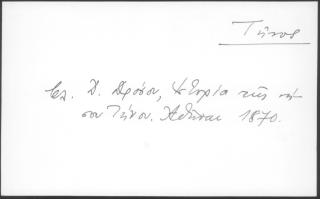 Τῆνος
Δ. Δρόσου, Ἱστορία τῆς νή-
σου Τήνου. Ἀθῆναι 1870.